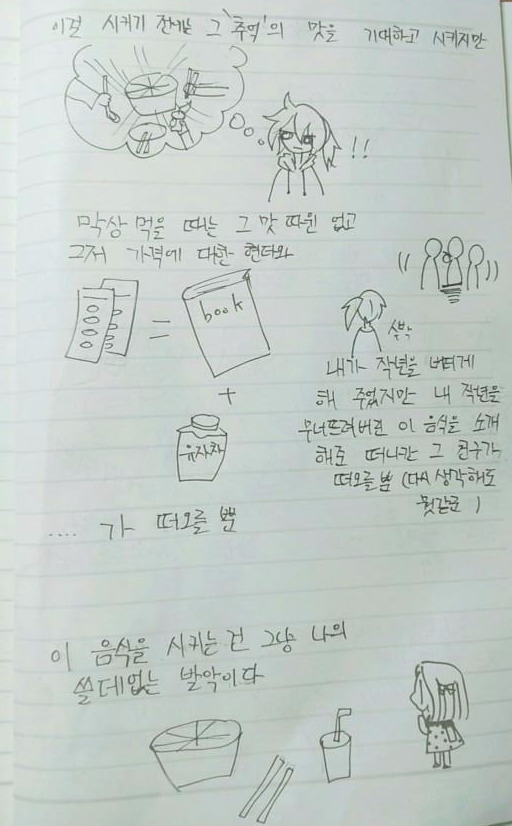 이걸 시키기 전에는 그 '추억'의 맛을 기대하고 시키지만
!!
막상 먹을 때는 그 맛 따윈 없고
그저 가격에 대한 현타와
book
=
+
유자차
내가 작년을 버티게
해 주었지만 내 작년을
무너뜨려버린 이 음식을 소개
해주 떠나간 그 친구가
떠오를 뿐 (다시 생각해도
뭣같군)
.... 가 떠오를 뿐
이 음식을 시키는 건 그냥 나의
쓸데없는 발악이다